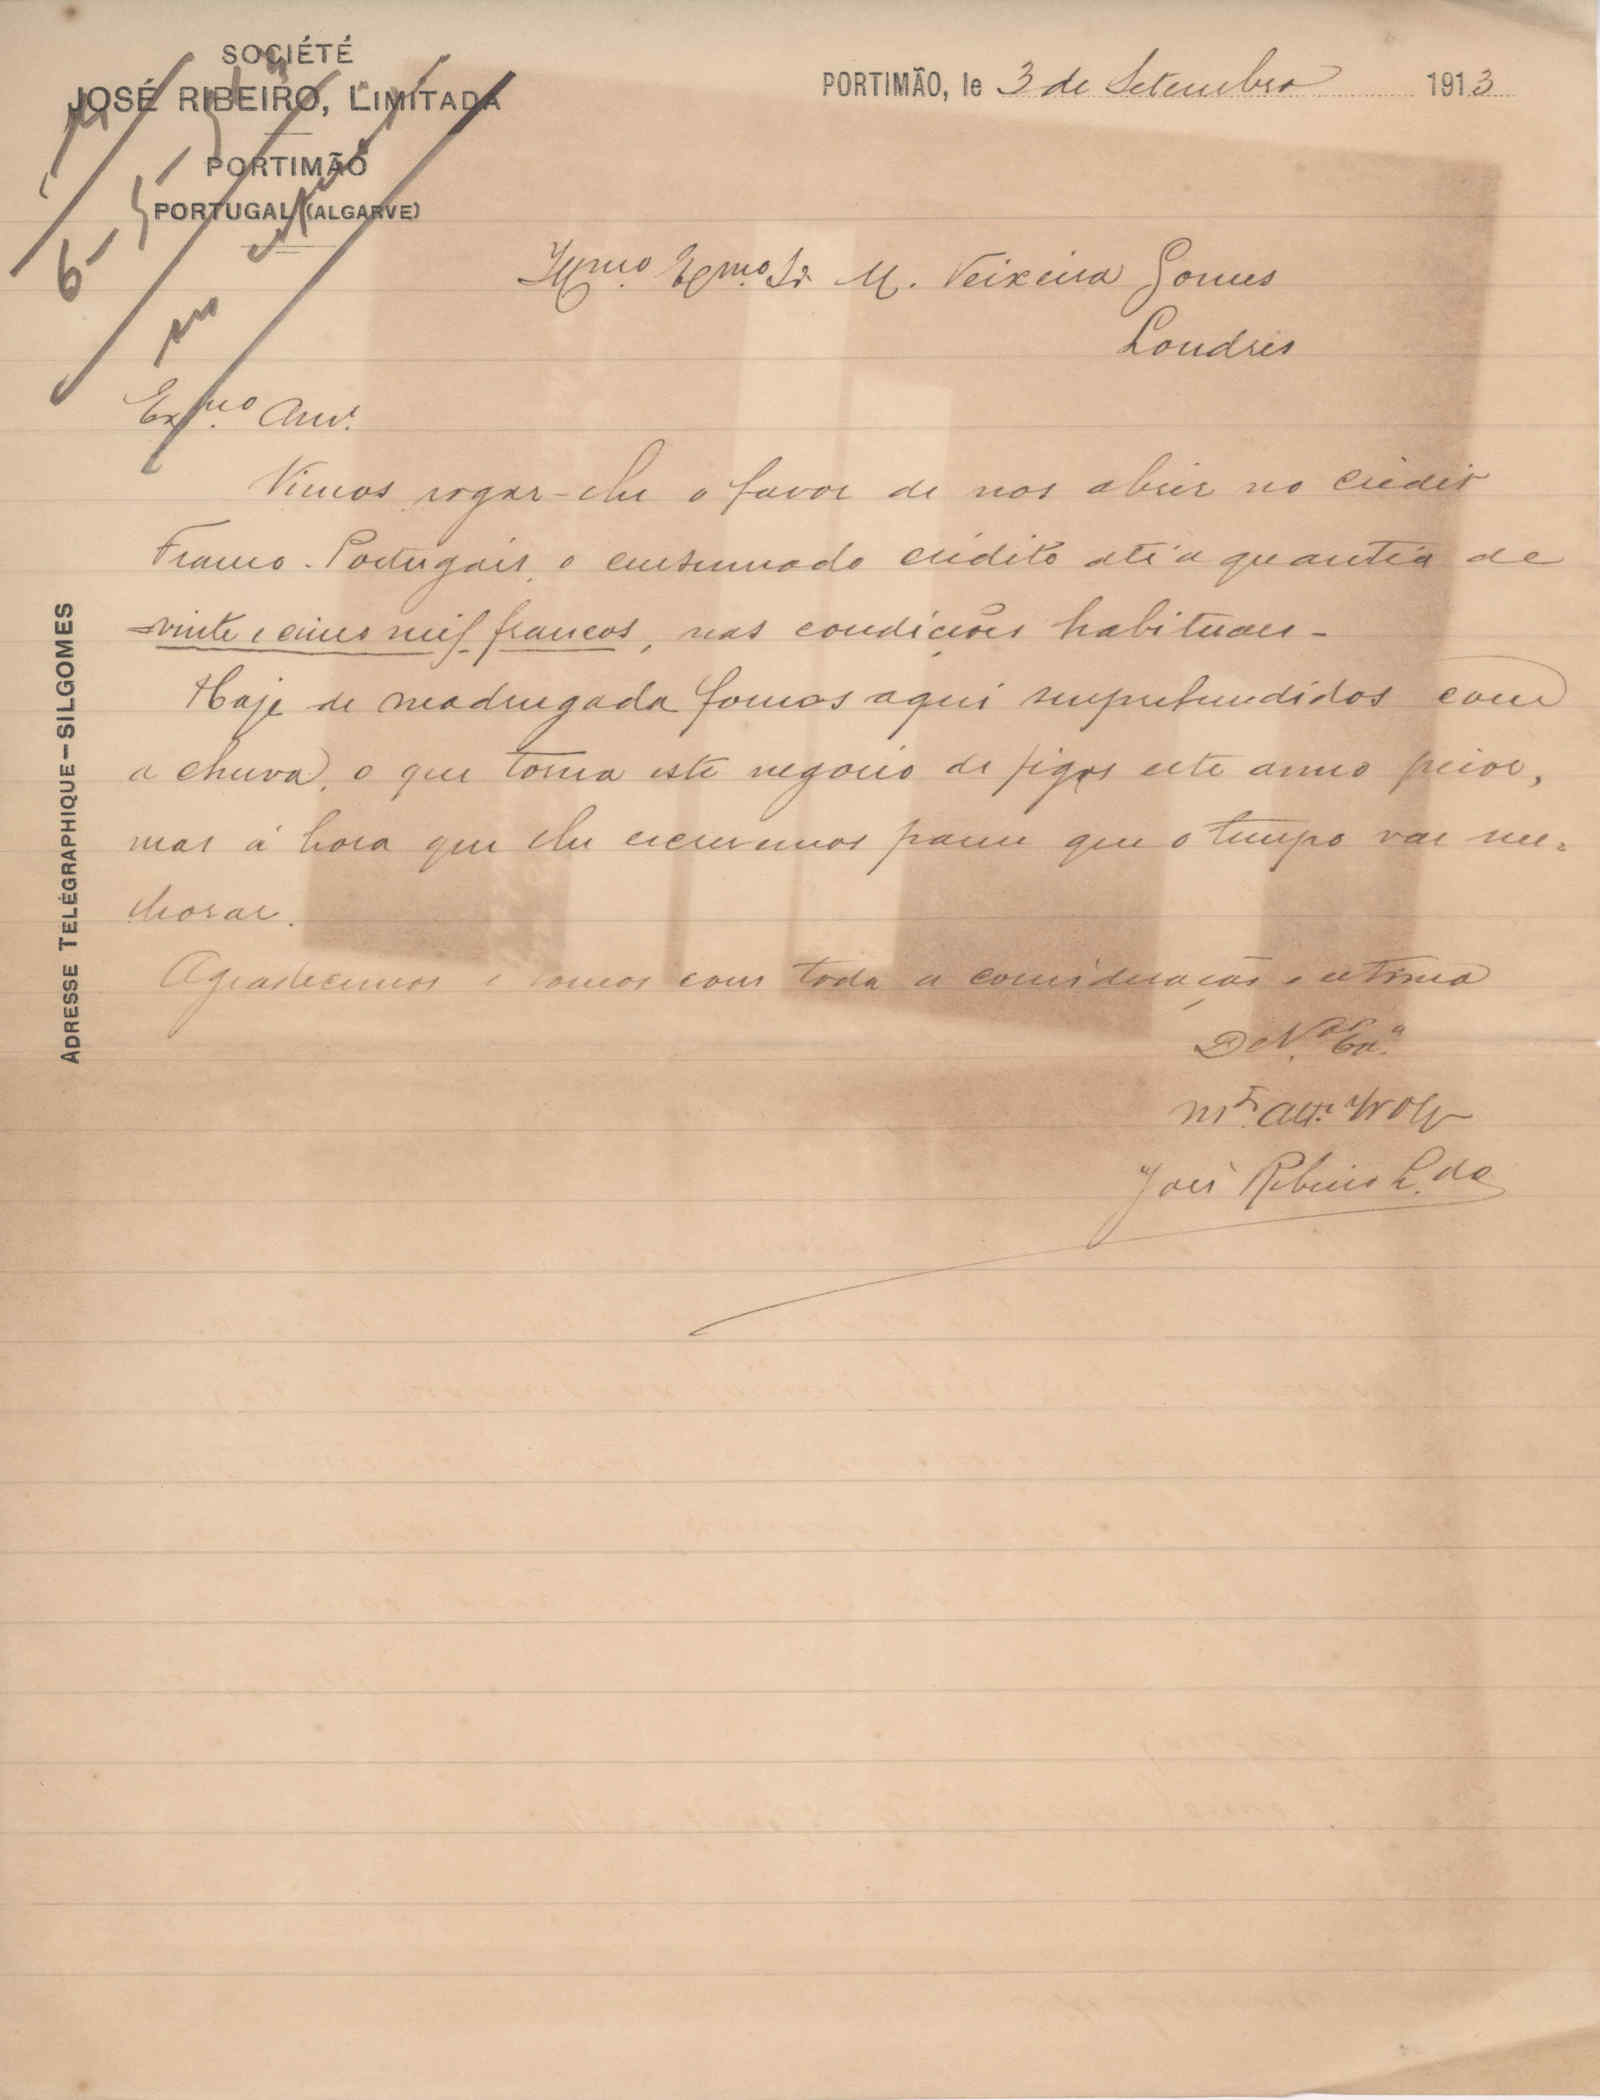 SOCIÉTÉ
JOSÉ RIBEIRO, LIMITADA
PORTIMÃO
PORTUGAL (ALGARVE)
PORTIMÃO, le 3 de Setembro 1913
Illmo. Exmo. Sr. M. Teixeira Gomes
Londres
Exmo. Amº.
Vimos rogar-lhe o favor de nos abrir no Crédit
Franco-Portugais, o costumado crédito até á quantia de
vinte e cinco mil francos, nas condições habituaes -
Hoje de madrugada fomos aqui surprehendidos com
a chuva, o que torna este negocio de figos este anno peior,
mas á hora que lhe escrevemos parece que o tempo vae me-
lhorar.
Agradecemos e somos com toda a consideração e estima
De V. Exa.
José Ribeiro L.da
ADRESSE TELÉGRAPHIQUE—SILGOMES